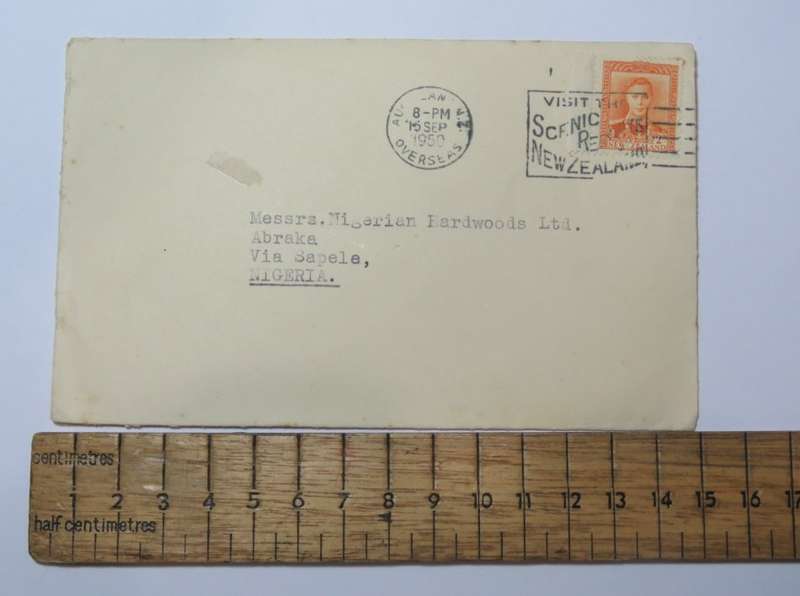 8-PM
15 SEP
1950
OVERSEAS
VISIT
SCENIC
NEW ZEALAND
NEW ZEALAND
Messrs.Nigerian Hardwoods Ltd.
Abraka
Via Sapele,
NIGERIA.
centimetres
1 2 3 4 5 6 7 8 9 10 11 12 13 14 15 16 17
half centimetres